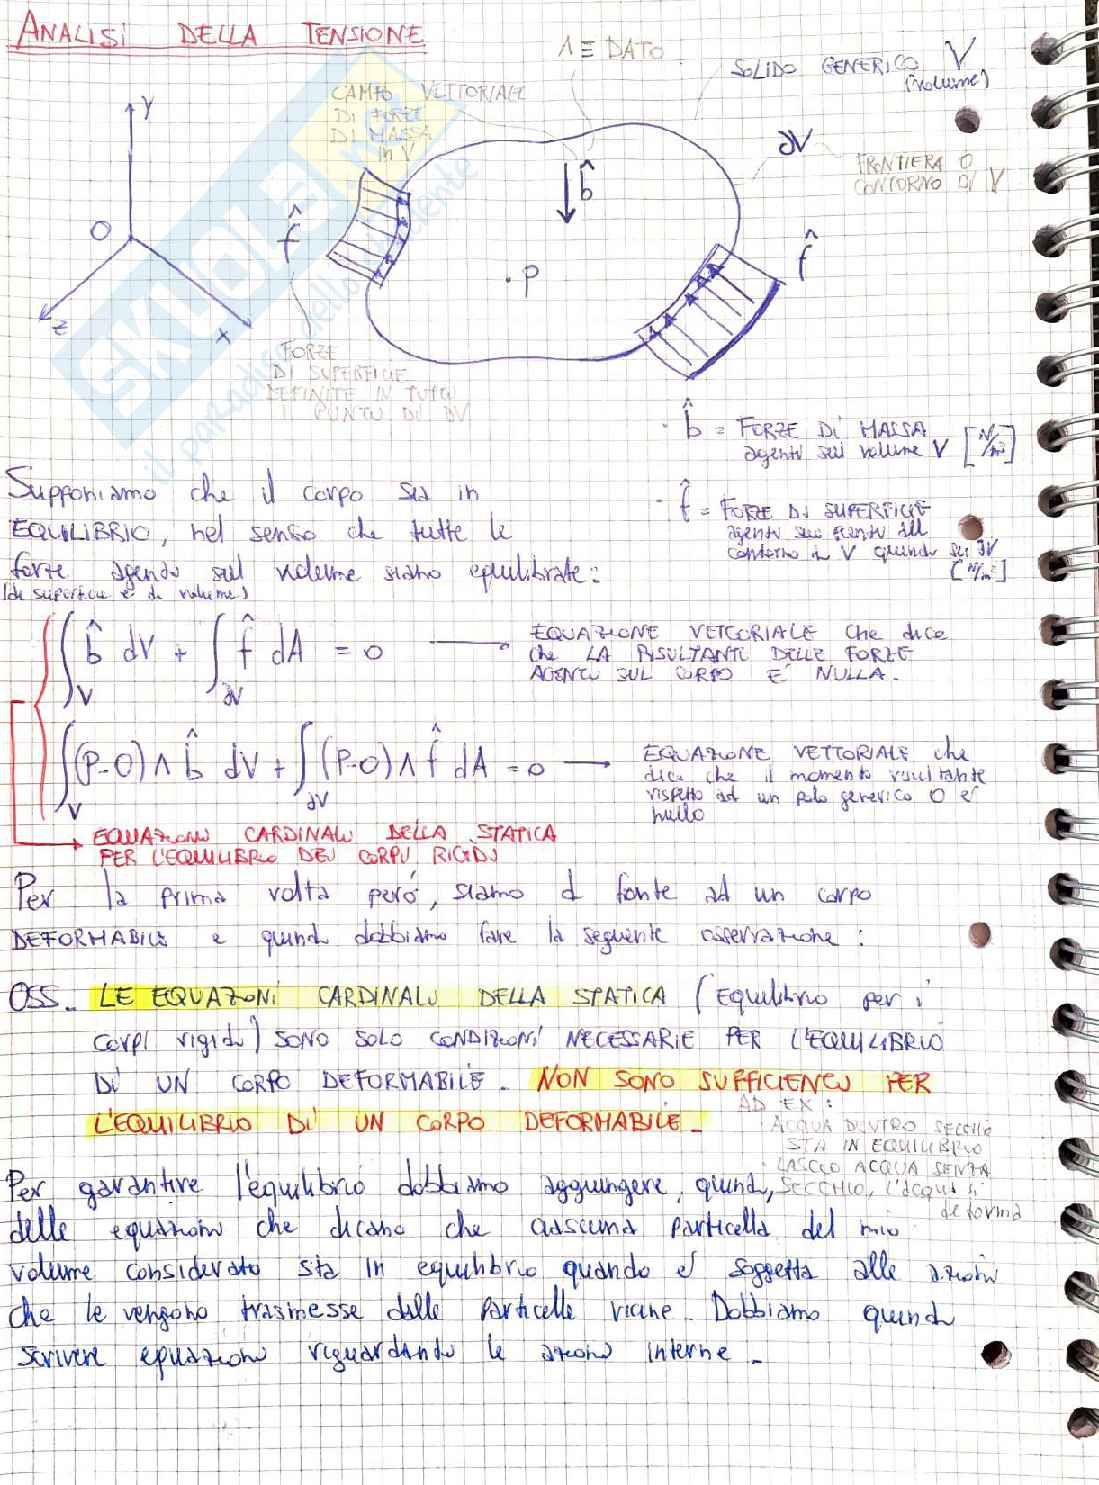 ANALISI DELLA TENSIONE
∧ ≡ DATO
SOLIDO GENERICO V
(volume)
CAMPO VETTORIALE
DI FORZE
DI MASSA
in V
Y
O
Z
X
f̂
b̂
.P
∂V
FRONTIERA O
CONTORNO DI V
f̂
FORZE
DI SUPERFICIE
DEFINITE IN TUTTI
I PUNTI DI ∂V
· b̂ = FORZE DI MASSA
agenti sul volume V [N/m³]
- f̂ = FORZE DI SUPERFICIE
agenti sul
contorno di V quindi su ∂V
[N/m²]
Supponiamo che il corpo sia in
EQUILIBRIO, nel senso che tutte le
forze agenti sul volume siano equilibrate:
(di superficie e di volume)
∫V b̂ dV + ∫∂V f̂ dA = 0 → EQUAZIONE VETTORIALE che dice
che LA RISULTANTE DELLE FORZE
AGENTI SUL CORPO E' NULLA.
∫V (P-O)∧b̂ dV + ∫∂V (P-O)∧f̂ dA = 0 → EQUAZIONE VETTORIALE che
dice che il momento risultante
rispetto ad un polo generico O e'
nullo
EQUAZIONI CARDINALI DELLA STATICA
PER L'EQUILIBRIO DEI CORPI RIGIDI
Per la prima volta peró, siamo di fronte ad un corpo
DEFORMABILE e quindi dobbiamo fare la seguente osservazione:
OSS_ LE EQUAZIONI CARDINALI DELLA STATICA (Equilibrio per i
corpi rigidi) SONO SOLO CONDIZIONI NECESSARIE PER L'EQUILIBRIO
DI UN CORPO DEFORMABILE. NON SONO SUFFICIENTI PER
L'EQUILIBRIO DI UN CORPO DEFORMABILE_
AD EX:
ACQUA DENTRO SECCHIO
STA IN EQUILIBRIO
LASCIO ACQUA SENZA
SECCHIO, L'acqua si
deforma
Per garantire l'equilibrio dobbiamo aggiungere, quindi,
delle equazioni che dicano che ciascuna particella del mio
volume considerato sta in equilibrio quando e' soggetta alle azioni
che le vengono trasmesse dalle particelle vicine. Dobbiamo quindi
scrivere equazioni riguardanti le azioni interne_
SKUOLA.net
il paradiso dello studente